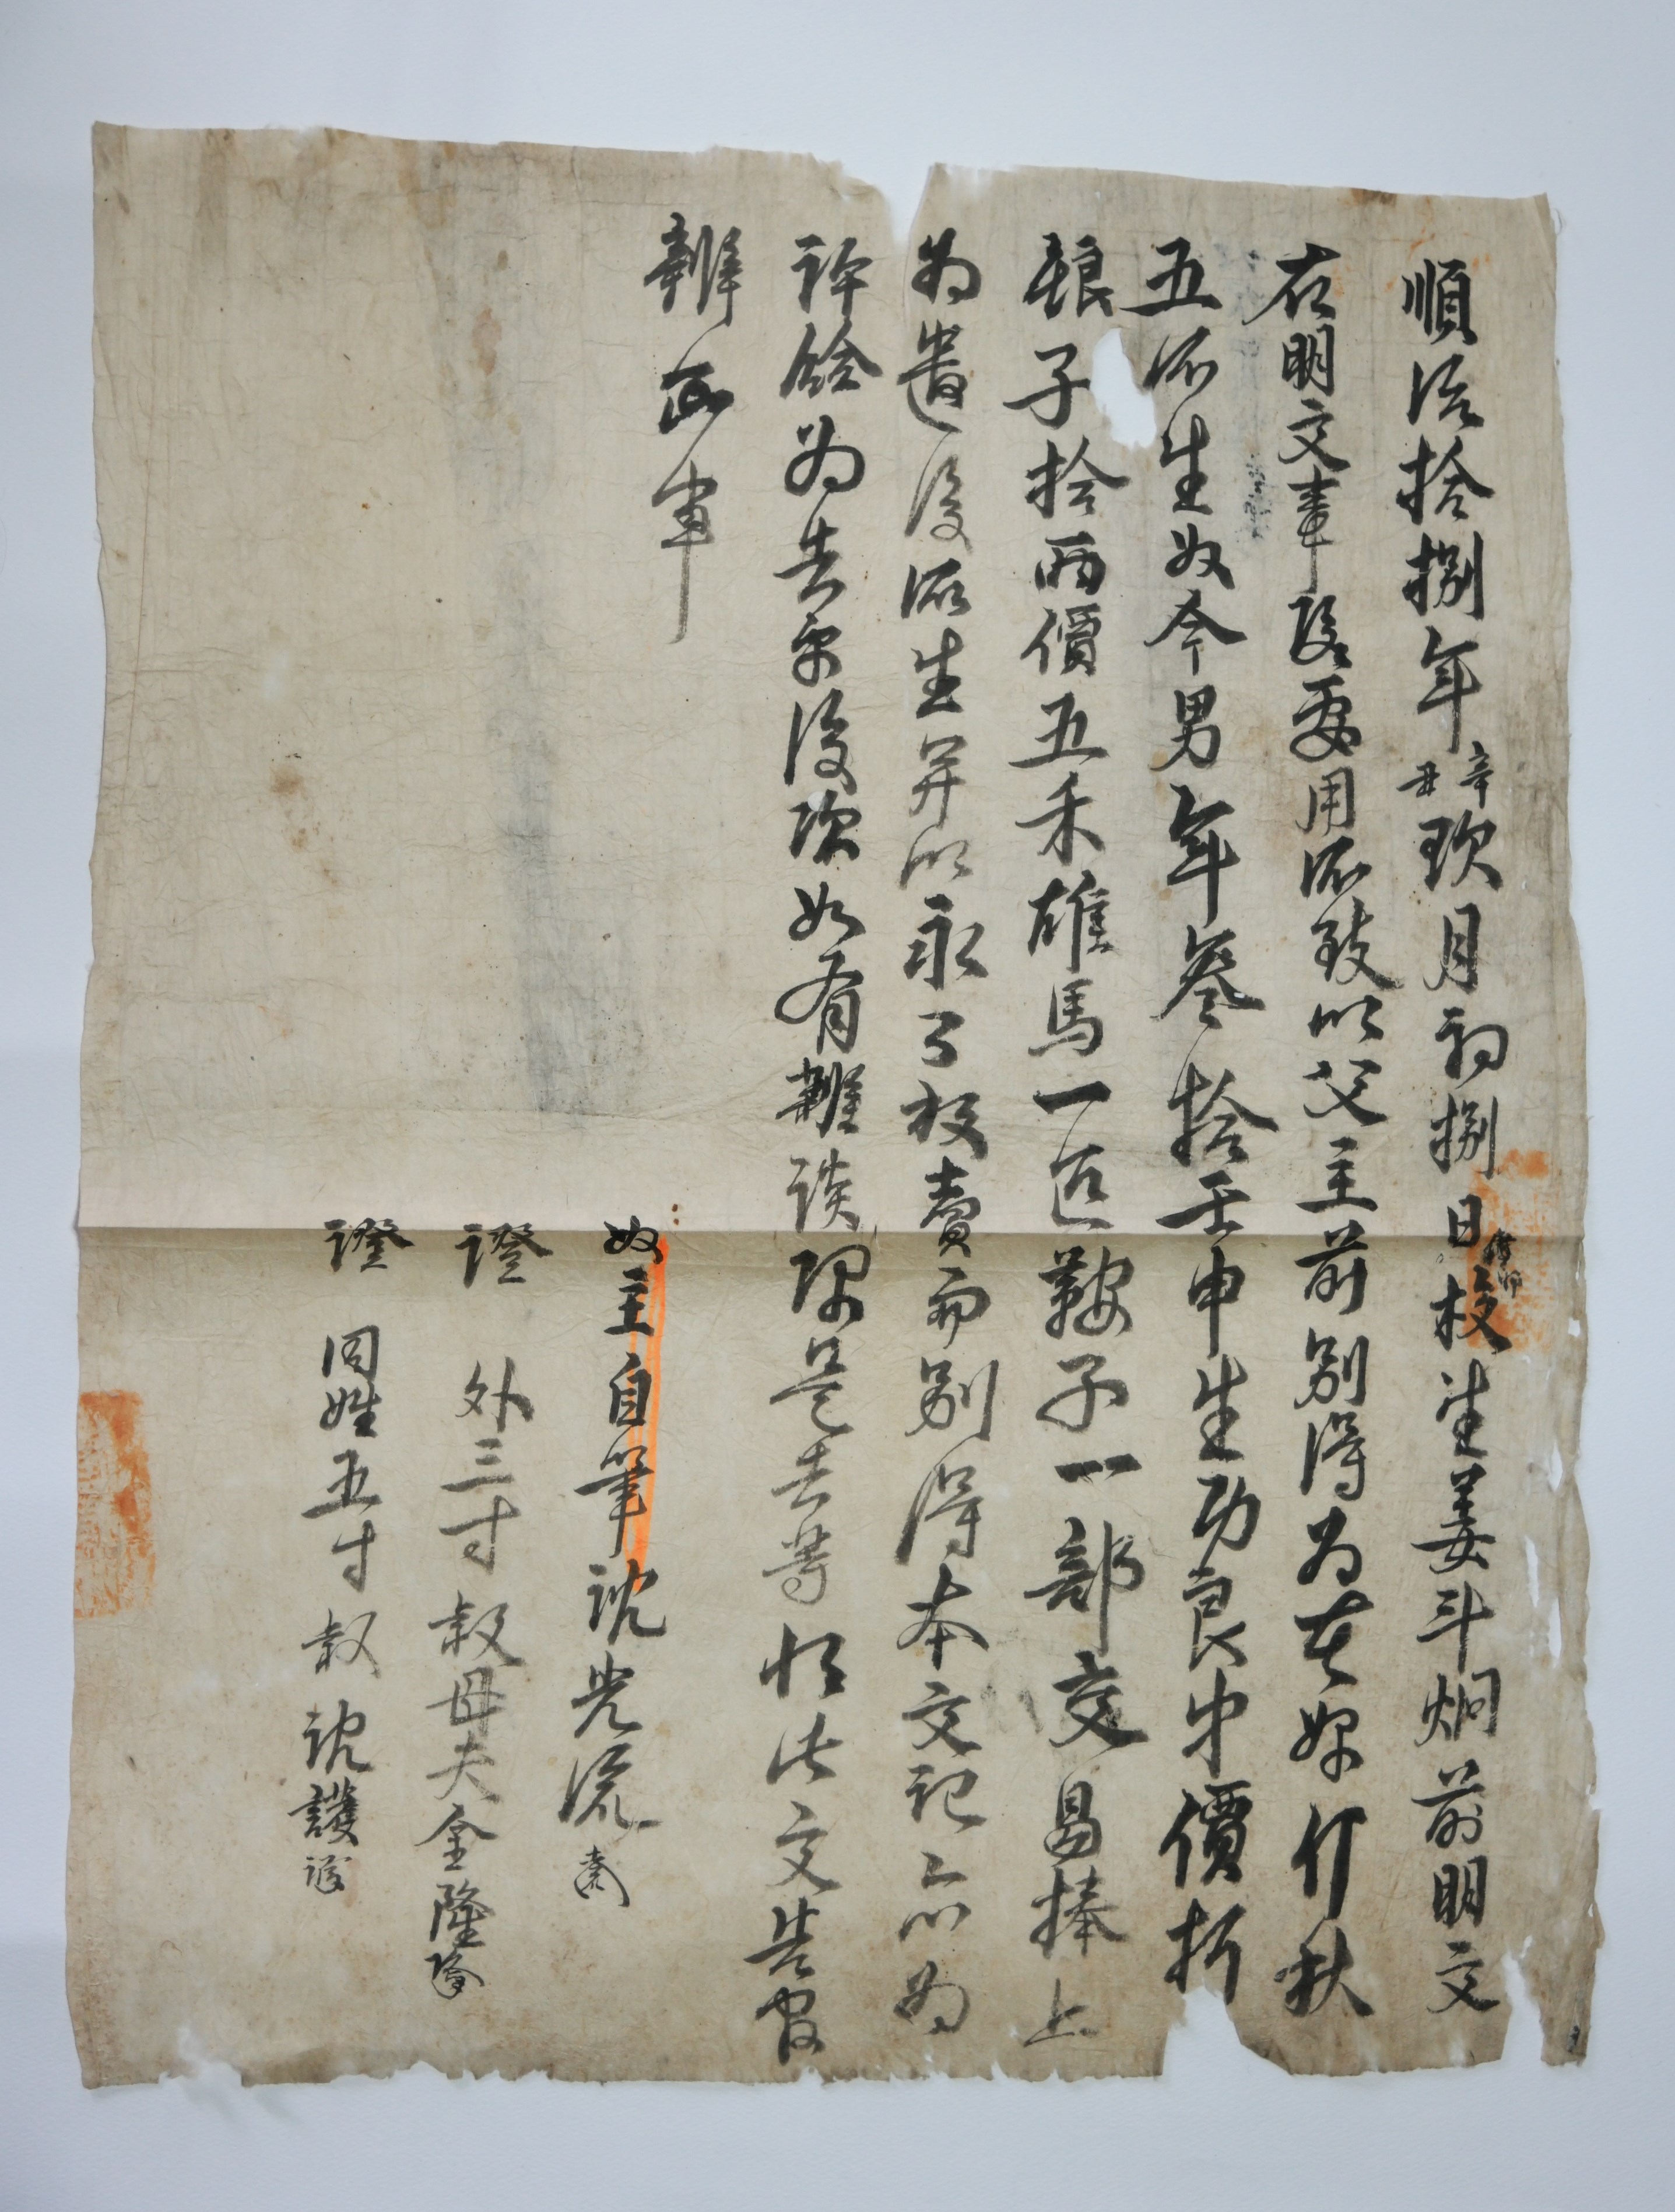 順治拾捌年辛丑玖月初捌日校生姜斗炯前明文
右明文事段要用所致以父主前別得為在婢介秋
五所生奴今男年參拾壬申生功良中價折
銀子拾兩價五禾雄馬一匹鞍子一部交易捧上
為遣後所生幷以永永放賣而別得本文記亦為
許給為去乎後次如有雜談隅是去等持此文告官
辨正事
奴主自筆沈光流
證 外三寸叔母夫金隆
證 同姓五寸叔沈護